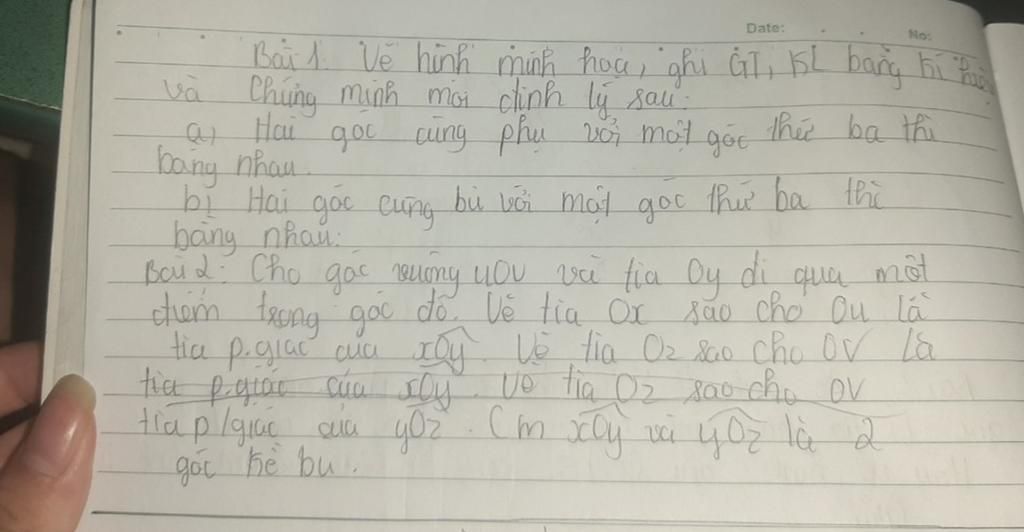 Date: No:
Bài 1. Vẽ hình minh hoạ, ghi GT, KL bằng kí hiệu
và Chứng minh mỗi định lý sau:
a, Hai góc cùng phụ với một góc thứ ba thì
bằng nhau.
b, Hai góc cùng bù với một góc thứ ba thì
bằng nhau:
Bài 2: Cho góc vuông uOv và tia Oy đi qua một
điểm trong góc đó. Vẽ tia Ox sao cho Ou là
tia p.giác của xOy. Vẽ tia Oz sao cho OV là
tia p.giác của xOy. Vẽ tia Oz sao cho OV
tia p/giác của yOz. Cm xOy và yOz là 2
góc kề bù.